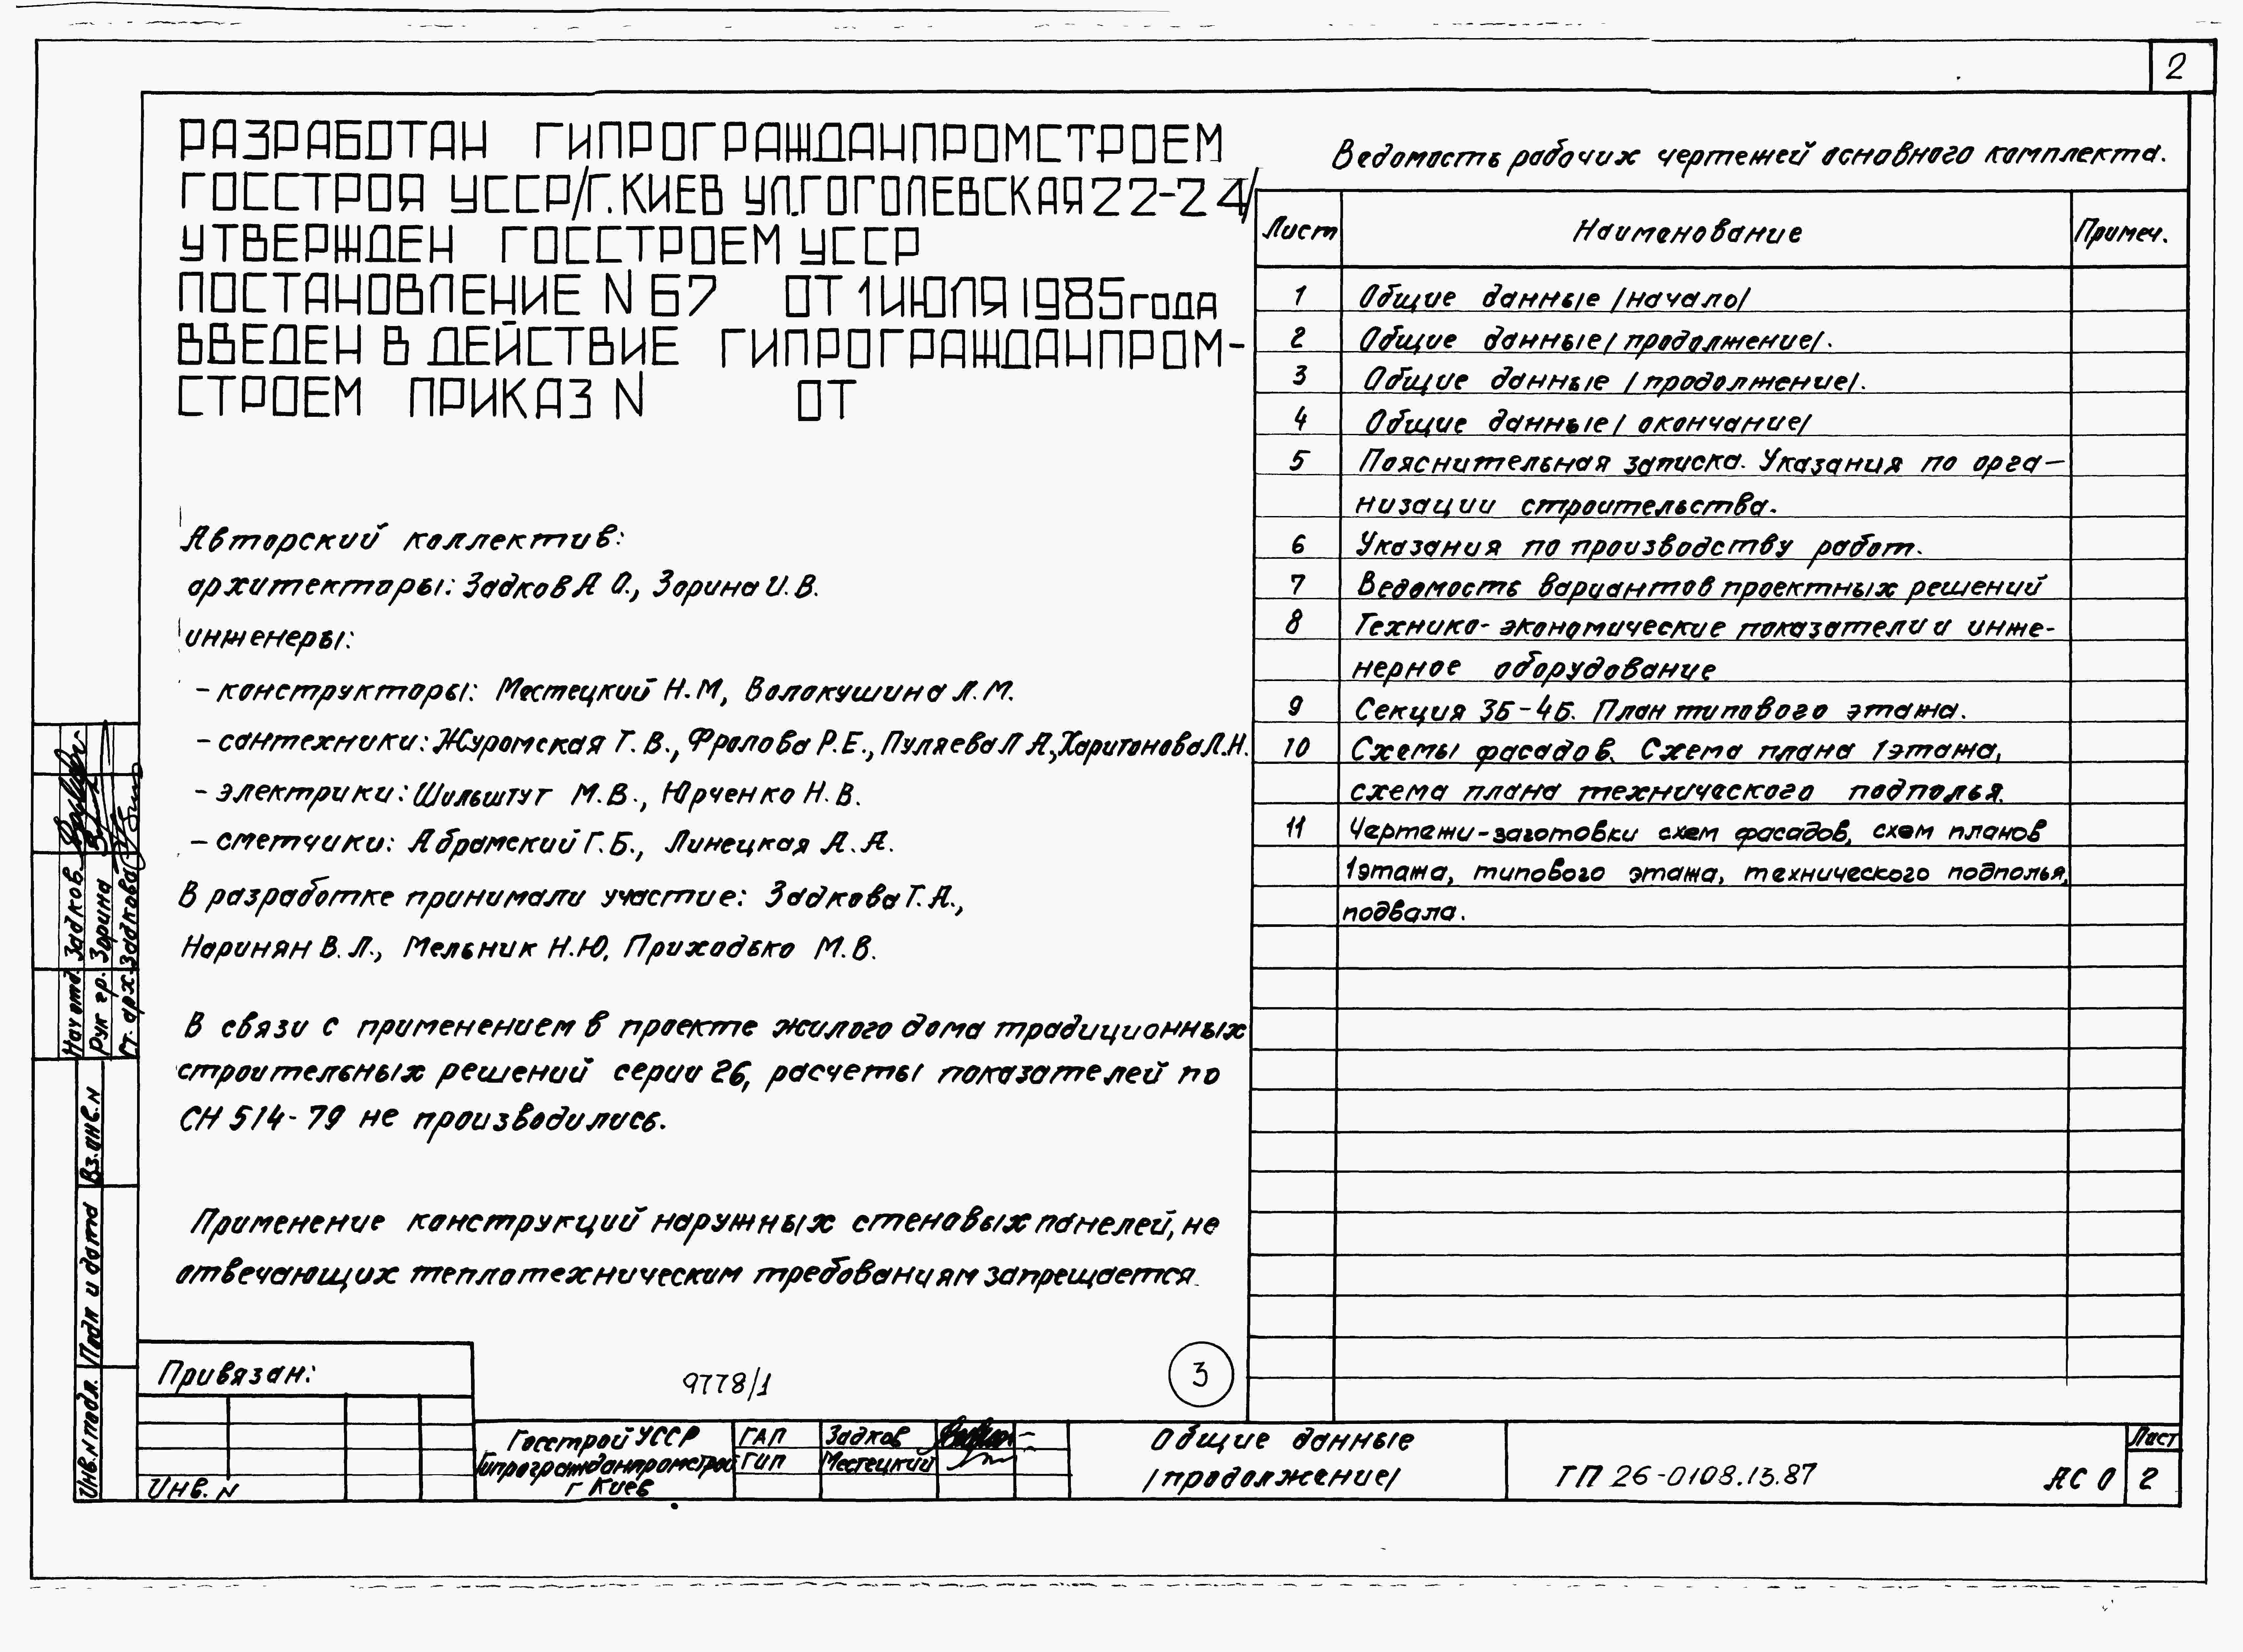 2
РАЗРАБОТАН ГИПРОГРАЖДАНПРОМСТРОЕМ
ГОССТРОЯ УССР/Г.КИЕВ УЛ.ГОГОЛЕВСКАЯ 22-24/
УТВЕРЖДЕН ГОССТРОЕМ УССР
ПОСТАНОВЛЕНИЕ N 67 ОТ 1 ИЮЛЯ 1985 года
ВВЕДЕН В ДЕЙСТВИЕ ГИПРОГРАЖДАНПРОМ-
СТРОЕМ ПРИКАЗ N ОТ
Авторский коллектив:
архитекторы: Задков А О., Зорина И.В.
инженеры:
- конструкторы: Местецкий Н.М, Волокушина Л.М.
- сантехники: Журомская Т.В., Фролова Р.Е., Пуляева Л А., Харитонова Л.Н.
- электрики: Шильштут М.В., Юрченко Н.В.
- сметчики: Абрамский Г.Б., Линецкая А.А.
В разработке принимали участие: Задкова Т.А.,
Наринян В.Л., Мельник Н.Ю, Приходько М.В.
В связи с применением в проекте жилого дома традиционных
строительных решений серии 26, расчеты показателей по
СН 514-79 не производились.
Применение конструкций наружных стеновых панелей, не
отвечающих теплотехническим требованиям запрещается.
Ведомость рабочих чертежей основного комплекта.
Лист Наименование Примеч.
1 Общие данные /начало/
2 Общие данные /продолжение/.
3 Общие данные /продолжение/.
4 Общие данные /окончание/
5 Пояснительная записка. Указания по орга-
низации строительства.
6 Указания по производству работ.
7 Ведомость вариантов проектных решений
8 Технико-экономические показатели и инже-
нерное оборудование
9 Секция 3Б-4Б. План типового этажа.
10 Схемы фасадов. Схема плана 1 этажа,
схема плана технического подполья.
11 Чертежи-заготовки схем фасадов, схем планов
1 этажа, типового этажа, технического подполья,
подвала.
Нач отд. Задков
Рук гр. Зорина
Ст. арх. Задкова
Вз. инв. N
Подп и дата
Инв. N подл.
Привязан:
Инв. N
9778/1
3
Госстрой УССР
Гипрогражданпромстрой
г Киев
ГАП Задков
ГИП Местецкий
Общие данные
/продолжение/
ТП 26-0108.13.87
АС 0
Лист
2